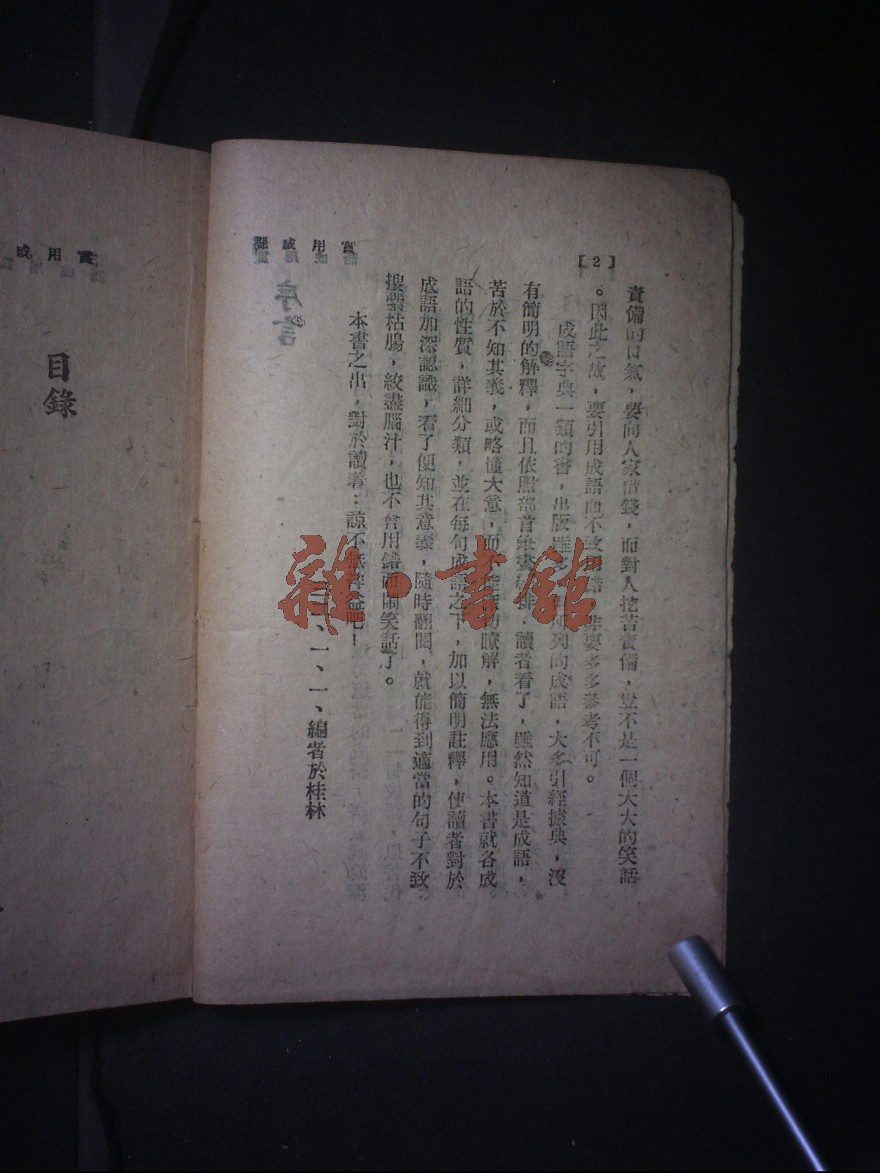 【2】
責備的口氣，要向人家借錢，而對人挖苦責備，豈不是一個大大的笑話
。因此之故，要引用成語而不致用錯，非要多多參考不可。
成語字典一類的書，出版雖多，列的成語，大多引經據典，沒
有簡明的解釋，而且依照部首筆畫排，讀者看了，雖然知道是成語，
苦於不知其義，或略懂大意，而不能瞭解，無法應用。本書就各成
語的性質，詳細分類，並在每句成語之下，加以簡明註釋，使讀者對於
成語加深認識，看了便知其意義，隨時翻閱，就能得到適當的句子不致
搜索枯腸，絞盡腦汁，也不會用錯而鬧笑話了。
本書之出，對於讀者：諒不無吧！
一、一、編者於桂林
實用成
序言
目錄
實用成
雜·書館